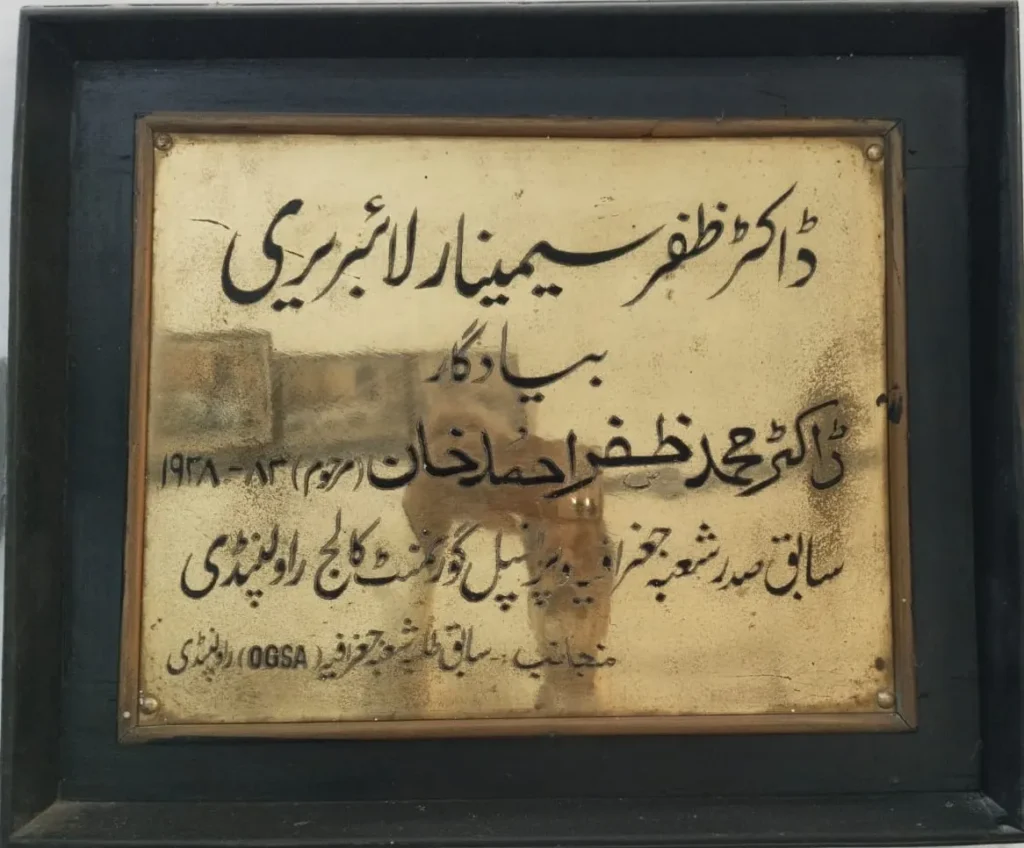 ڈاکٹر ظفر سیمینار لائبریری
بیادگار
ڈاکٹر محمد ظفر احمد خان (مرحوم) ۸۳ - ۱۹۳۸
سابق صدر شعبہ جغرافیہ و پرنسپل گورنمنٹ کالج راولپنڈی
منجانب :- سابق طلبہ شعبہ جغرافیہ (OGSA) راولپنڈی